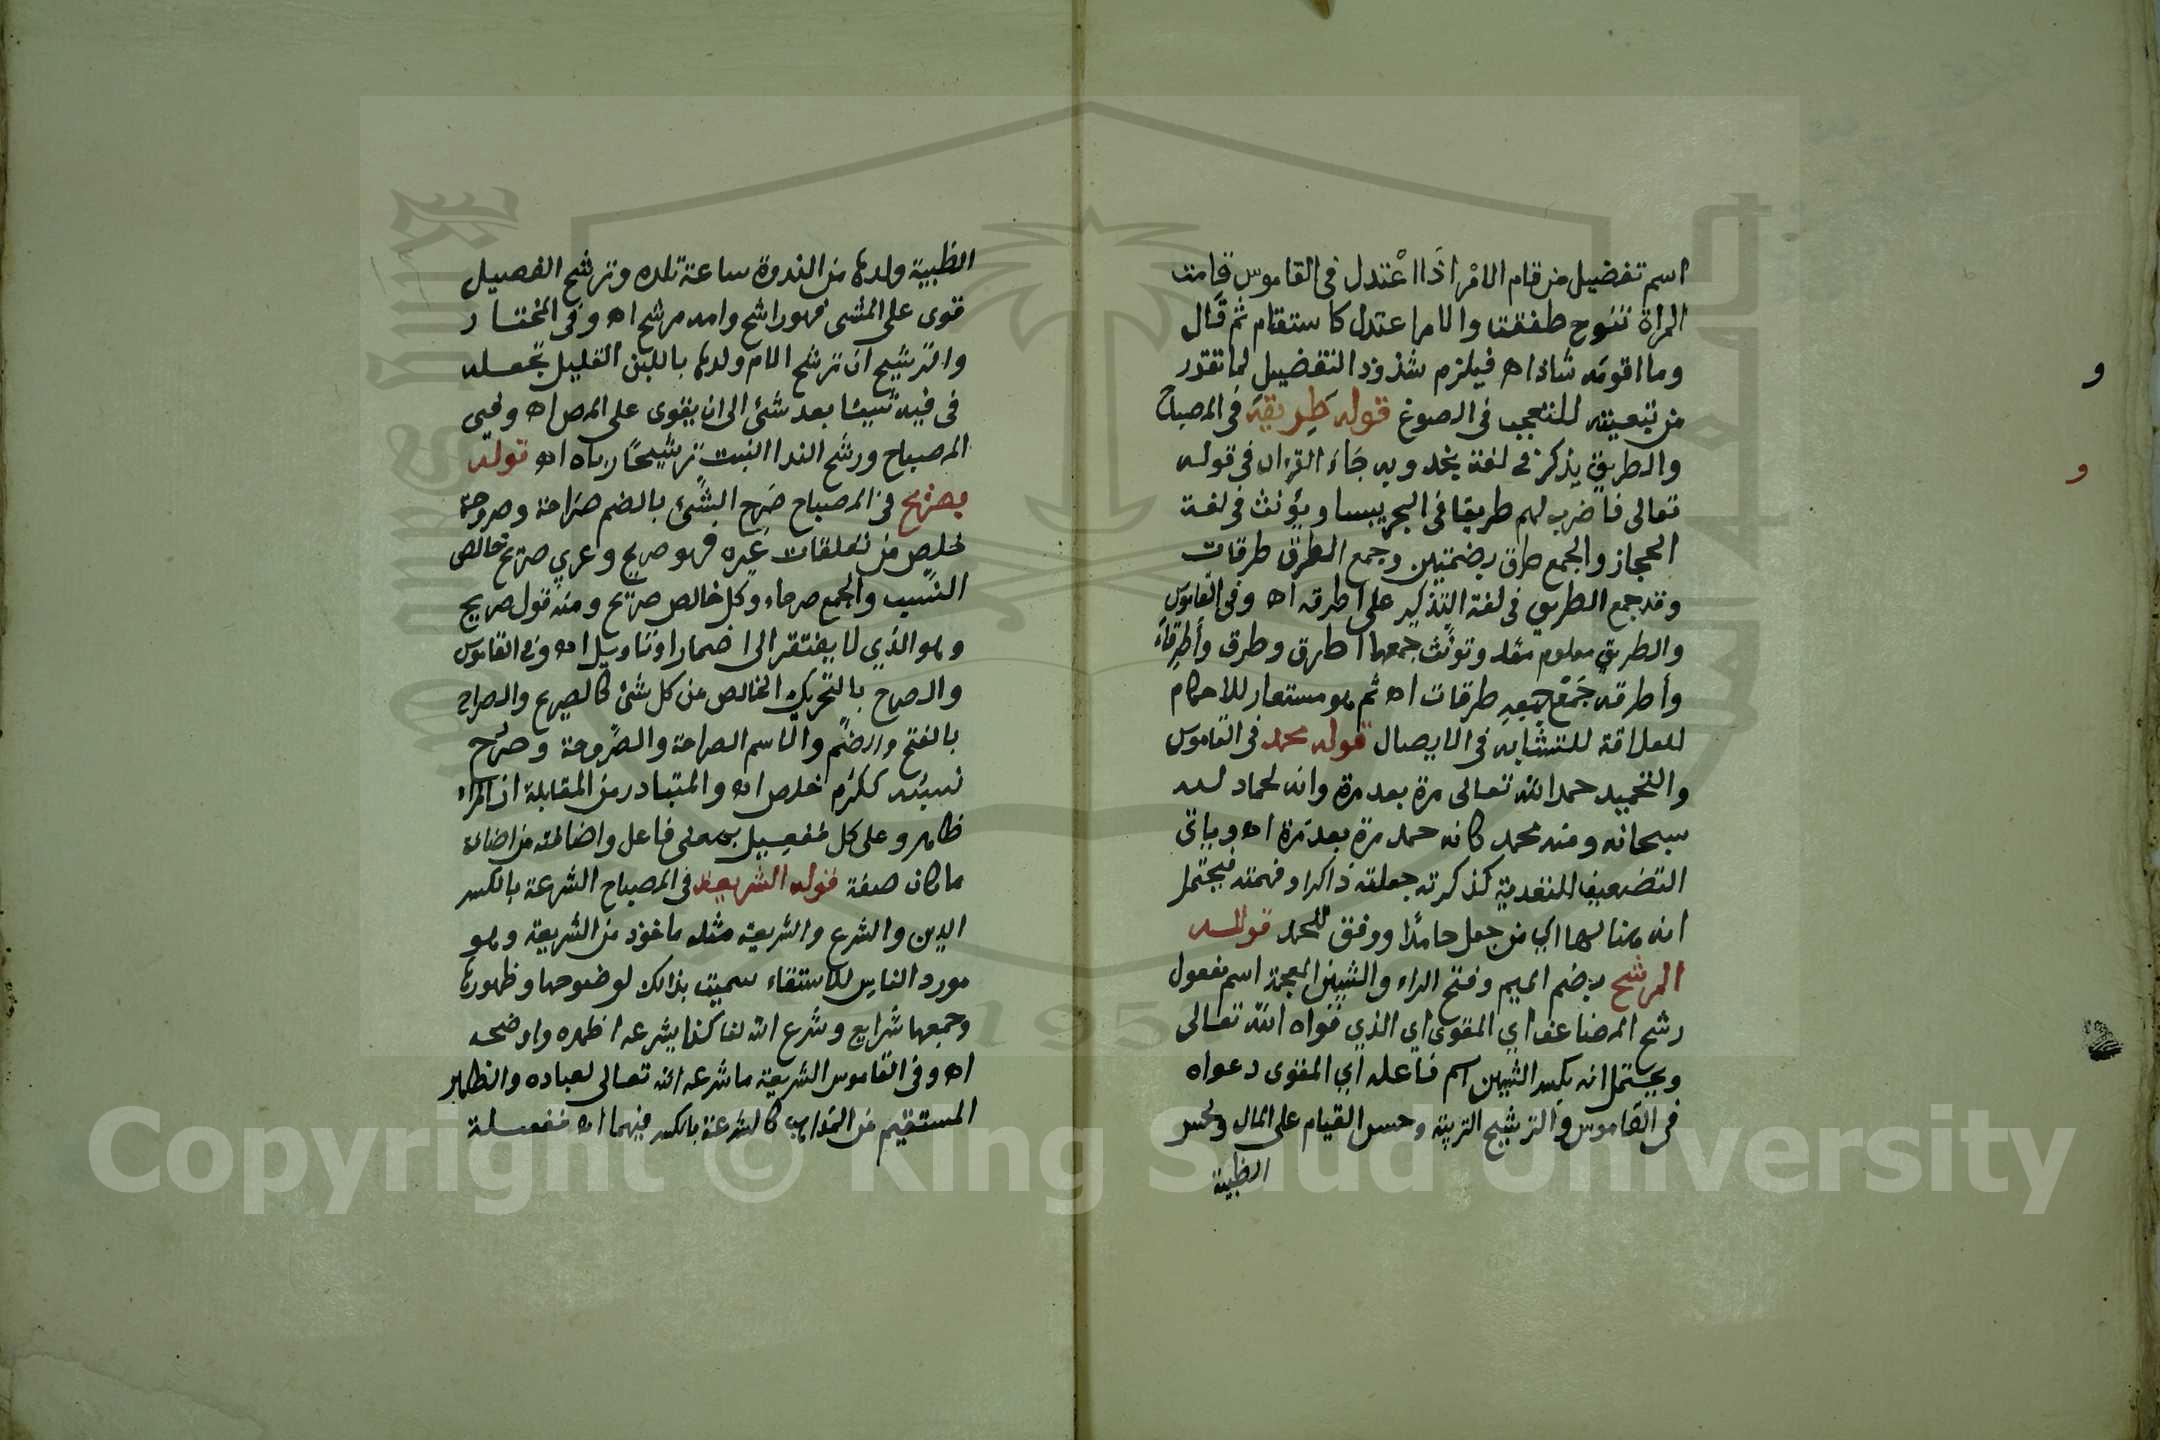 اسم تفضيل من قام الامر اذا اعتدل في القاموس قامت
المراة تنوح طفقت والامر اعتدل كاستقام ثم قال
وما اقومه شاذ اه فيلزم شذوذ التفضيل لما تقدر
من تبعيته للتعجب في الصوغ قوله طريقة في المصباح
والطريق يذكر في لغة نجد وبه جاء القران في قوله
تعالى فاضرب لهم طريقا في البحر يبسا ويؤنث في لغة
الحجاز والجمع طرق بضمتين وجمع الطرق طرقات
وقد جمع الطريق في لغة التذكير على اطرقه اه وفي القاموس
والطريق معلوم مثله وتونث جمعها اطرق وطرق وأطرقاء
وأطرقه جَمْعُ طرقات اه ثم هو مستعار للاحكام
للعلاقة للتشابه في الايصال قوله محمد في القاموس
والتحميد حمد الله تعالى مرة بعد مرة وانه لحماد لله
سبحانه ومنه محمد كانه حمد مرة بعد مرة اه وياتي
التضعيف للتعدية كذكرته جعلته ذاكرا وفهمته فيحتمل
انه هنا لها اي من جعل حامدا ووفق للحمد قوله
المرشح بضم الميم وفتح الراء والشين المعجمة اسم مفعول
رشح المضاعف اي المقوى اي الذي قواه الله تعالى
ويحتمل انه بكسر الشين اسم فاعله اي المقوى دعواه
في القاموس والترشيح التربية وحسن القيام على المال ولحس
الظبية
و
و
الظبية ولدها من الندوة ساعة تلده وترشح الفصيل
قوى على المشي فهو راشح وامه مرشح اه وفي المختار
والترشيح ان ترشح الام ولدها باللبن القليل تجعله
في فيه شيئا بعد شئ الى ان يقوى على المص اه وفي
المصباح ورشح الندا النبت ترشيحًا رباه اه قوله
بصريح في المصباح صَرُح الشئ بالضم صراحة وصروحة
خلص من تعلقات غيره فهو صريح وعربي صريح خالص
النسب والجمع صرحاء وكل خالص صريح ومنه قول صريح
وهو الذي لا يفتقر الى اضمار او تاويل اه وفي القاموس
والصرح بالتحريك الخالص من كل شئ كالصريح والصراح
بالفتح والضم والاسم الصراحة والصروحة وصرح
نسبه ككرم خلص اه والمتبادر من المقابلة ان المراد
ظاهر وعلى كل ففعيل بمعنى فاعل واضافته من اضافة
ما كان صفة قوله الشريعة في المصباح الشرعة بالكسر
الدين والشرع والشريعة مثله ماخوذ من الشريعة وهو
مورد الناس للاستقاء سميت بذلك لوضوحها وظهورها
وجمعها شرايع وشرع الله لنا كذا يشرعه اظهره واوضحه
اه وفي القاموس الشريعة ما شرعه الله تعالى لعباده والظاهر
المستقيم من المذاهب كالشرعة بالكسر فيهما اه ففعيلة
Copyright © King Saud University